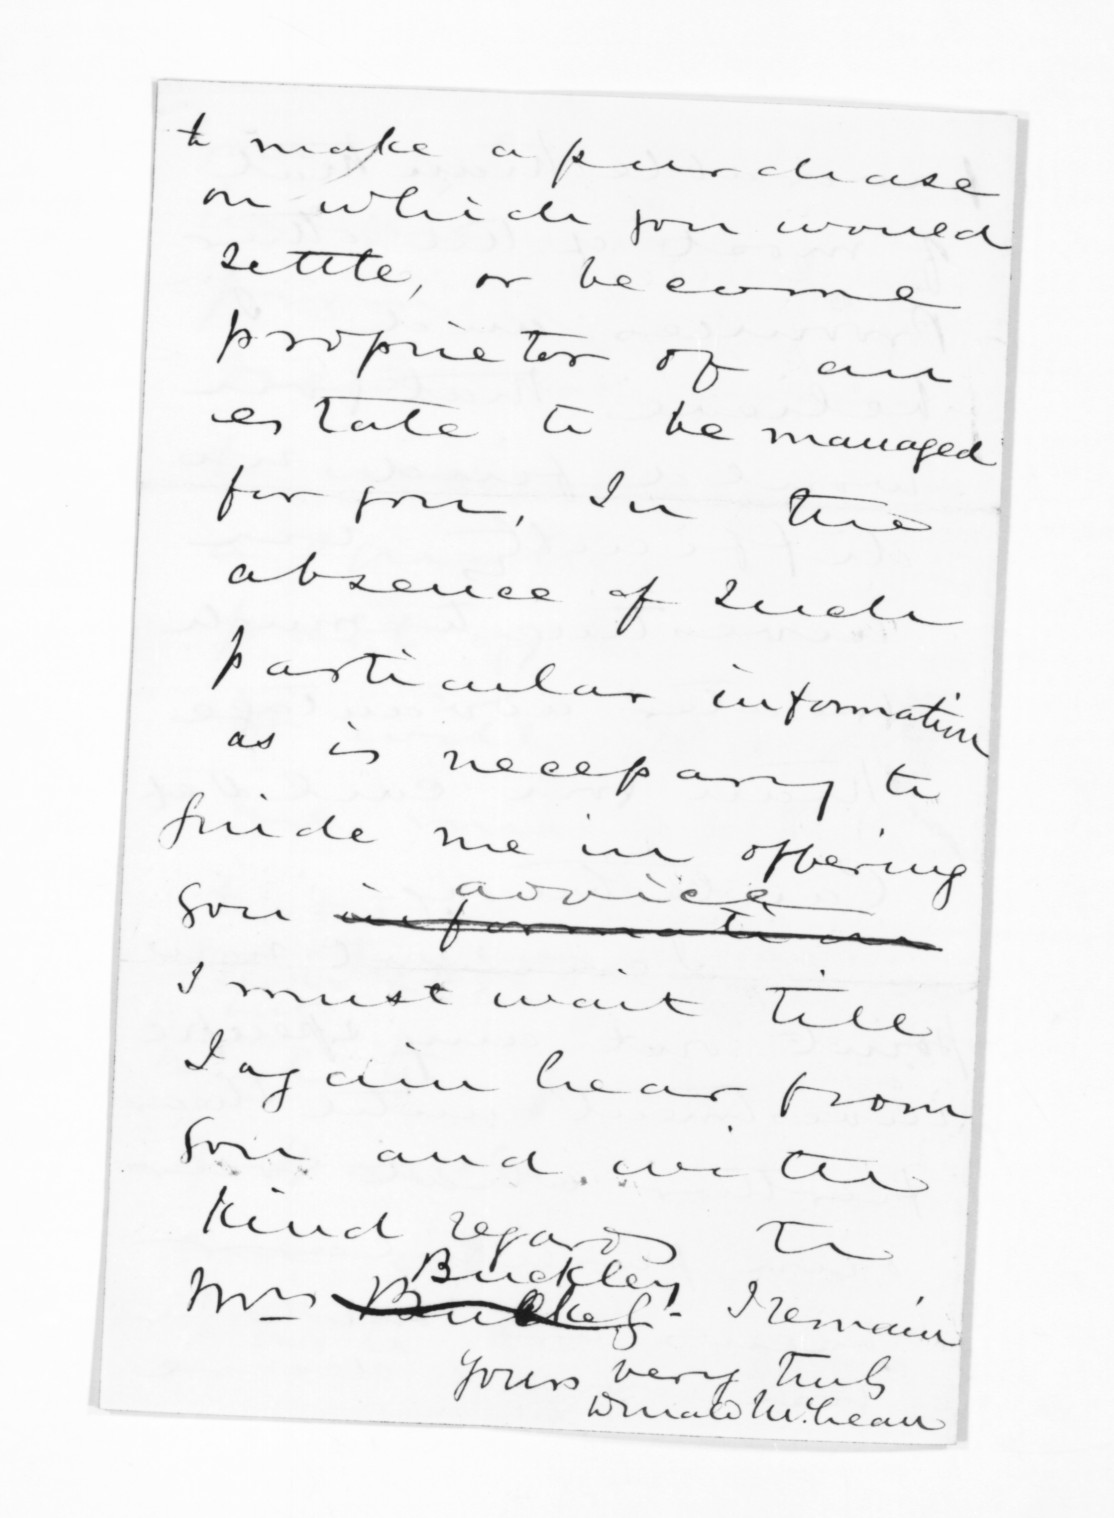 to make a purchase
on which you would
settle, or become
proprietor of an
estate to be managed
for you, In the
absence of such
particular information
as is necessary to
guide me in offering
advice
you information
I must wait till
I again hear from
you and with
kind regards to
Buckley
Mrs Bulkey - I remain
yours very truly
Donald McLean